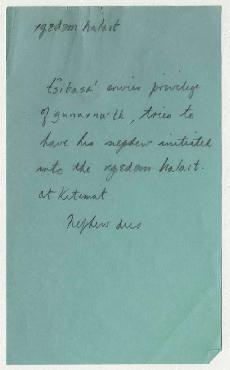 xgedəm halait
Tsibasa' envies privilege
of gunaxnu·tk, tries to
have his nephew initiated
into the xgedəm halait.
at Kitimat
Nephew dies